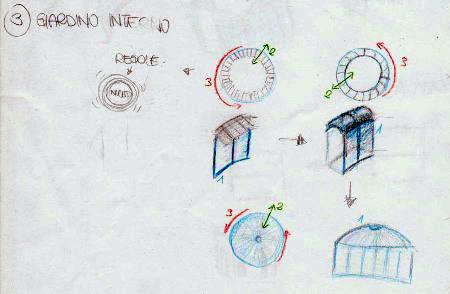 3 GIARDINO INTERNO
REGOLE.
2
3
2
3
1
1
3
2
1